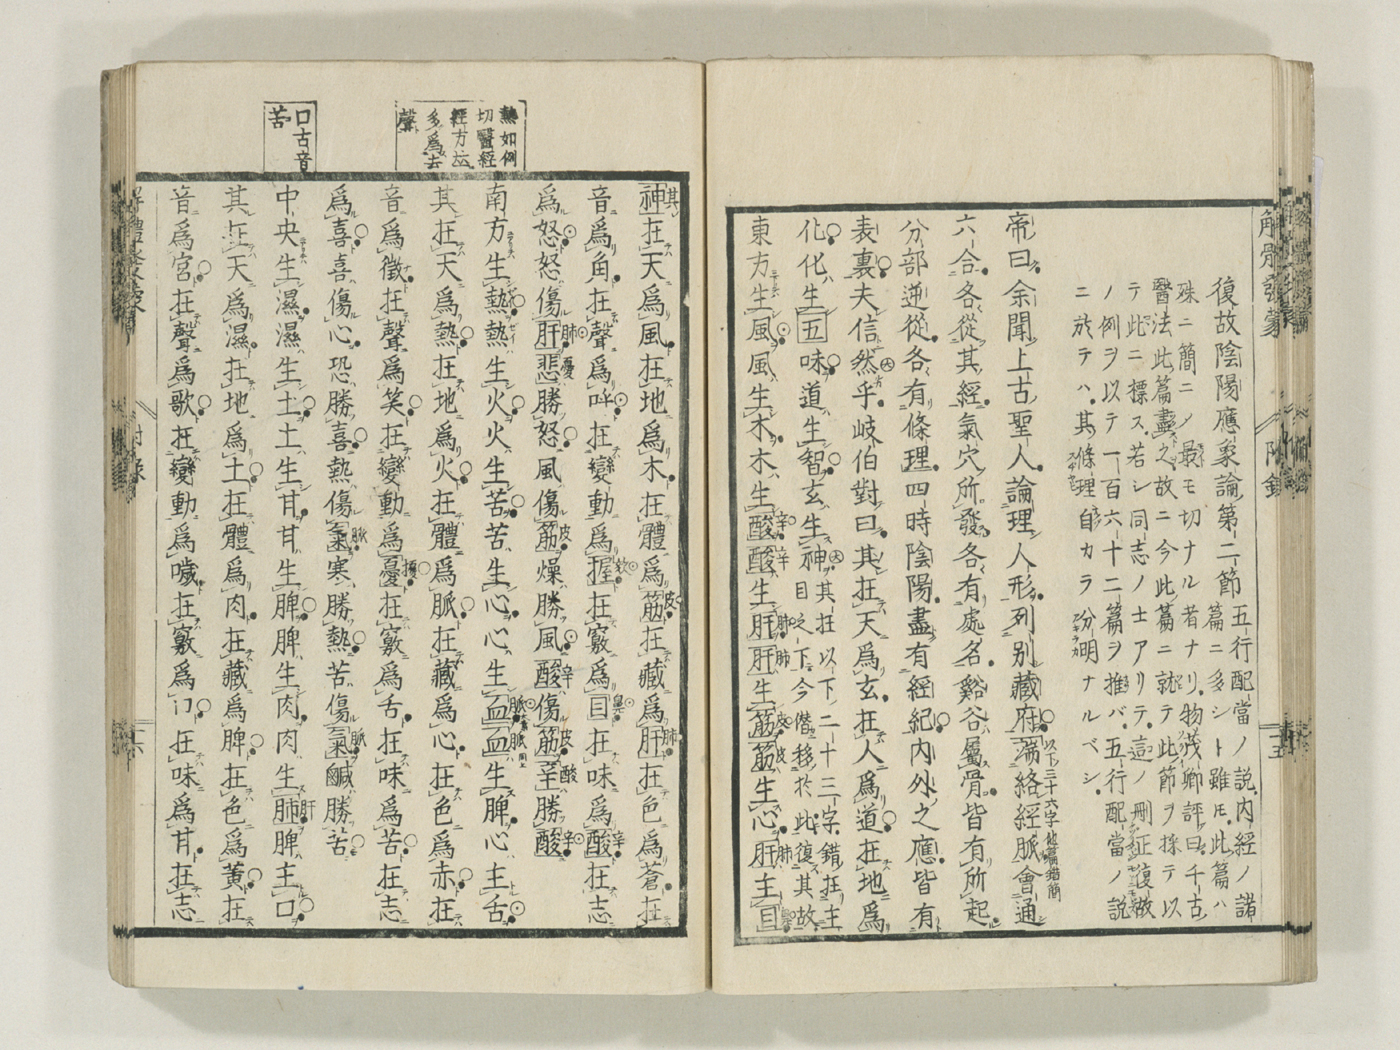 復故陰陽應象論第二節 五行配當ノ說內經ノ諸
篇ニ多シト雖モ此篇ハ
殊ニ簡ニノ最モ切ナル者ナリ物茂卿評曰千古
醫法此篇盡之故ニ今此篇ニ就テ此節ヲ採テ以
テ此ニ標ス若シ同志ノ士アリテ這ノ刪正復故
ノ例ヲ以テ一百六十二篇ヲ推バ五行配當ノ說
ニ於テハ其條理自カラ分明ナルベシ
帝曰余聞上古聖人論理人形列別藏府 以下三十六字他篇錯簡 端絡經脈會通
六合各從其經氣穴所發各有處名谿谷屬骨皆有所起
分部逆從各有條理四時陰陽盡有經紀內外之應皆有
表裏夫信然乎岐伯對曰其在天爲玄在人爲道在地爲
化化生五味道生智玄生神 其在以下二十三字錯在主目之下今僭移於此復其故
東方生風風生木木生酸酸生肝肝生筋筋生心肝主目
解體發蒙
附錄
十五
神在天爲風在地爲木在體爲筋在藏爲肝在色爲蒼在
音爲角在聲爲呼在變動爲握在竅爲目在味爲酸在志
爲怒怒傷肝悲勝怒風傷筋燥勝風酸傷筋辛勝酸
南方生熱熱生火火生苦苦生心心生血血生脾心主舌
其在天爲熱在地爲火在體爲脈在藏爲心在色爲赤在
音爲徵在聲爲笑在變動爲憂在竅爲舌在味爲苦在志
爲喜喜傷心恐勝喜熱傷氣寒勝熱苦傷氣鹹勝苦
中央生濕濕生土土生甘甘生脾脾生肉肉生肺脾主口
其在天爲濕在地爲土在體爲肉在藏爲脾在色爲黃在
音爲宮在聲爲歌在變動爲噦在竅爲口在味爲甘在志
熱如例
切醫經
經方㳒
多爲去
聲
口古音
苦
附錄
十六